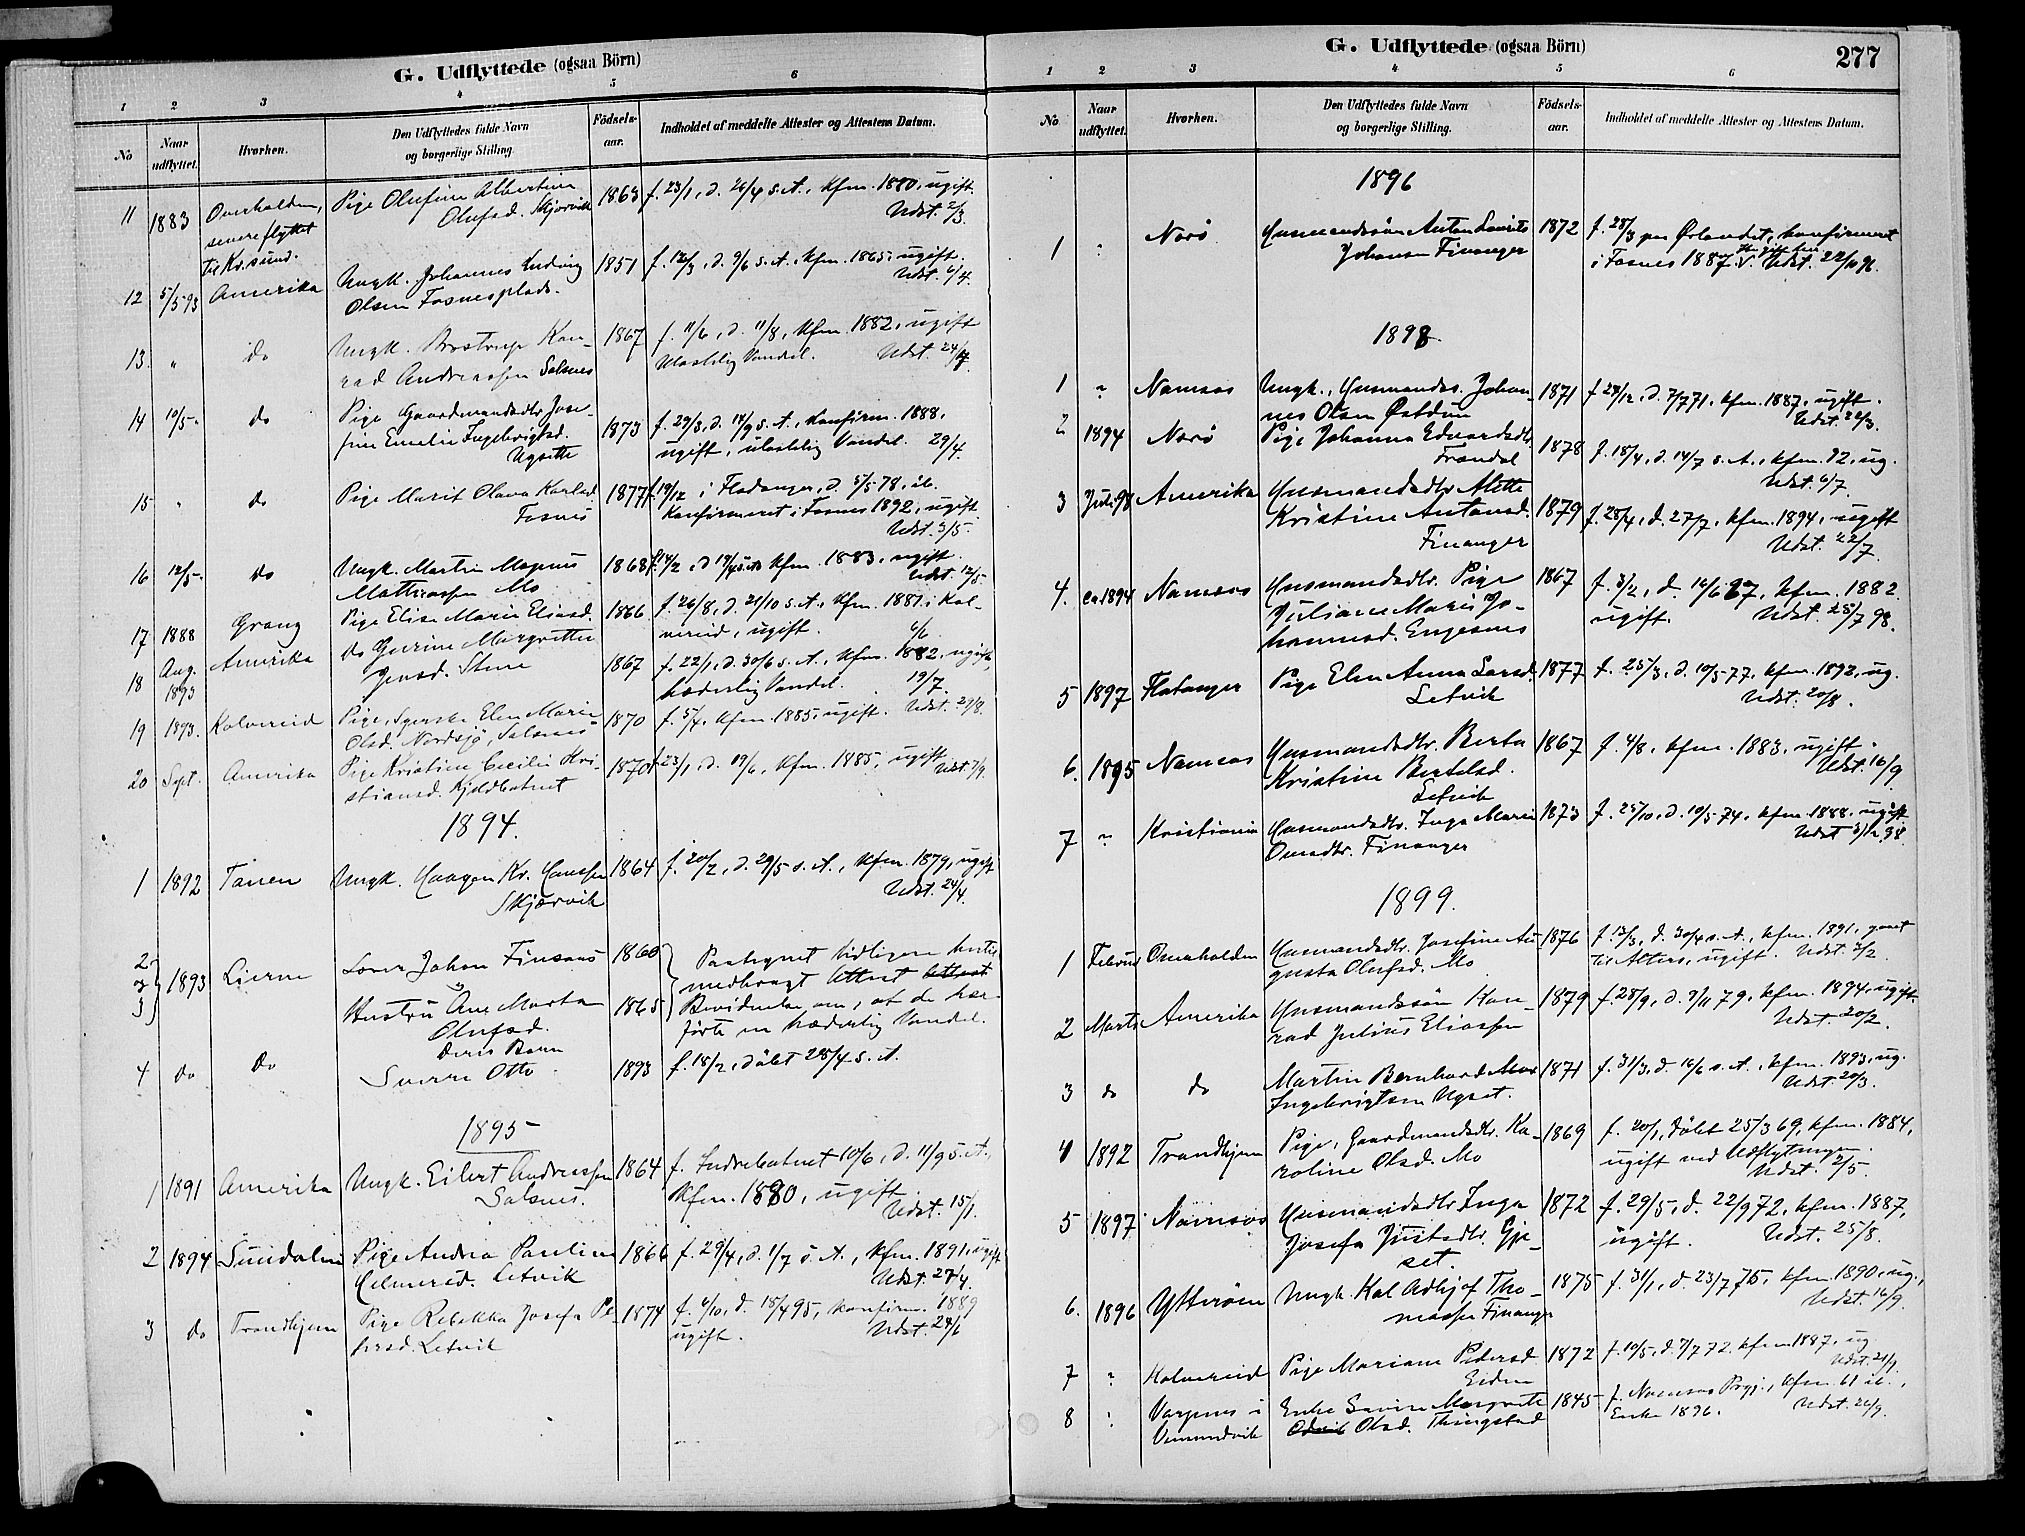 G. Udflyttede (ogsaa Börn)
1 2 3 4 5 6
No
Naar udflyttet.
Hvorhen.
Den Udflyttedes fulde Navn
og borgerlige Stilling.
Födsels-
aar.
Indholdet af meddelte Attester og Attestens Datum.
11 1883 Overhalden, Pige Olufine Albertine 1863 f. 23/1, d. 26/4 s.A., kfm. 1880, ugift.
senere flyttet Olufsd. Skjærvik Udst. 2/3.
til Kr.sund.
12 5/5 93 Amerika Ungk. Johannes Ludvig 1851 f. 12/3, d. 9/6 s.A., kfm. 1865, ugift.
Olsen Fosnesplads. Udst. 6/4.
13 " do Ungk. Brostrup Kon- 1867 f. 11/6, d. 11/8, kfm. 1882, ugift
rad Andreassen Salsnes Ulastelig Vandel. Udst. 24/4.
14 10/5. do Pige Gaardmandsdtr. Jose- 1873 f. 29/3, d. 14/9 s.A., konfirm. 1888,
fine Emelie Ingebrigtsd. ugift, ulastelig Vandel. 29/4.
Ugsette
15 " do Pige Marit Olava Karlsd. 1877 f. 19/12 i Fladanger, d. 5/5 78, ib.
Fosnes Konfirmeret i Fosnes 1892, ugift
Udst. 3/5.
16 12/5. do Ungk. Martin Magnus 1868 f. 14/2, d 19/4 s.A. kfm. 1883, ugift.
Mattiassen Mo Udst. 12/5.
17 1888 Grong Pige Elise Marie Eliasd. 1866 f. 26/8, d. 21/10 s.A., kfm. 1881 i Kol-
vereid, ugift. 6/6.
18 Aug. 1893 Amerika do Gurine Margrethe 1867 f. 22/1, d. 30/6 s.A., kfm. 1882, ugift,
Jensd. Stene hæderlig Vandel. 19/7.
19 1893. Kolvereid Pige, Syerske Elen Marie 1870 f. 5/4, kfm. 1885, ugift. Udst. 29/8.
Olsd. Nordsjö, Salsnes
20 Sept. Amerika Pige Kristine Cecilie Kri- 1870 f. 23/1, d. 19/6, kfm. 1885, ugift Udst. 7/9.
stiansd. Kjeldbotnet
1894.
1 1892 Tanen Ungk. Haagen Kr. Hanssen 1864 f. 20/2, d. 29/5 s.A., kfm. 1879, ugift
Skjærvik Udst. 24/4.
2 og 3 1893 Lierne Johan Finsaas 1860 Paategnet tidligere hertil
medbragt Attest
Hustru Ane Marta 1865 Bevidnelse om, at de her
Olufsd. førte en hæderlig Vandel.
deres Barn
4 do do Sverre Otto 1893 f. 18/2, döbt 28/4 s.A.
1895
1 1891 Amerika Ungk. Eilert Andreassen 1864 f. Indrebotnet 10/6, d. 11/9 s.A.,
Salsnes. kfm. 1880, ugift
Udst. 15/1.
2 1894 Sundalen Pige Andrea Pauline 1866 f. 29/4, d. 1/7 s.A., kfm. 1891, ugift
Helmersd. Letvik Udst. 27/4.
3 do Trondhjem Pige Rebekka Josefa Pe- 1874 f. 6/10, d. 18/4 95, konfirm. 1889
tersd. Letvik ugift. Udst. 24/6
G. Udflyttede (ogsaa Börn) 277
1 2 3 4 5 6
No
Naar
udflyttet.
Hvorhen.
Den Udflyttedes fulde Navn
og borgerlige Stilling.
Födsels-
aar.
Indholdet af meddelte Attester og Attestens Datum.
1896
1 " Nærö Husmandssön Anton Laurits 1872 f. 28/3 paa Ørlandet, konfirmeret
Johansen Finanger i Fosnes 1887. Udst. 22/10 96.
1898.
1 " Namsos Ungk., Husmandss. Johan- 1871 f. 29/12, d. 7/7 71, kfm. 1887, ugift.
nes Olsen Østduun Udst. 22/3.
2 1894 Nærö Pige Johanna Edvardsdtr. 1878 f. 18/4, d. 14/7 s.A., kfm. 92, ug.
Frandal Udst. 6/7.
3 Juli 98 Amerika Husmandsdtr. Alette 1879 f. 28/4, d. 27/7, kfm. 1894, ugift
Kristine Antonsd. Udst. 22/7.
Finanger
4. ca 1894 Namsos Husmandsdtr. Pige 1867 f. 3/2, d. 16/6 67, kfm. 1882
Juliane Marie Jo- ugift. Udst. 28/7 98.
hannesd. Engesnes
5 1897 Flatanger Pige Elen Anna Larsd. 1877 f. 25/3, d. 10/5 77, kfm. 1892, ug.
Letvik Udst. 20/8.
6. 1895 Namsos Husmandsdtr. Berta 1867 f. 4/8, kfm. 1883, ugift.
Kristine Bertelsd. Udst. 16/9
Letvik
7 " Kristiania Husmandsdtr. Inga Marie 1873 f. 25/10, d. 10/5 74, kfm. 1888, ugift.
Onsdtr. Finanger
1899.
1 Februar Overhalden Husmandsdtr. Josefine Au- 1876 f. 13/3, d. 30/4 s.A., kfm. 1891, gaaet
gusta Olufsd. Mo til Alters, ugift. Udst. 3/2.
2 Marts Amerika Husmandssön Kon- 1879 f. 28/9, d. 9/11 79, kfm. 1894, ugift
rad Julius Eliassen Udst. 20/2.
3 do do Martin Bernhard 1871 f. 31/3, d. 16/6 s.A., kfm. 1893, ug.
Ingebrigtsen Ugset. Udst. 20/3.
4 1892 Trondhjem Pige, Gaardmandsdtr. Ka- 1869 f. 20/1, döbt 25/3 69, kfm. 1884,
roline Olsd. Mo ugift ved Udflytningen.
Udst. 2/5.
5 1897 Namsos Husmandsdtr. Inga 1872 f. 29/5, d. 22/9 72, kfm. 1887,
Josefa Justsdtr. Gje- ugift. Udst. 25/8.
set.
6. 1896 Ytterøen Ungk. Kal Adkjef Tho- 1875 f. 31/1, d. 23/7 75, kfm. 1890, ug.,
massen Finanger Udst. 16/9.
7 " Kolvereid Pige Mariane Pedersd. 1872 f. 10/5, d. 7/7 72, kfm. 1887, ug.
Eiden Udst. 21/9.
8 " Vargenes i Enke Sivine Margrete 1845 f. Namsos Pgj., kfm. 61 ib.,
Vemundvik Olsd. Thingstad Enke 1896. Udst. 26/9.